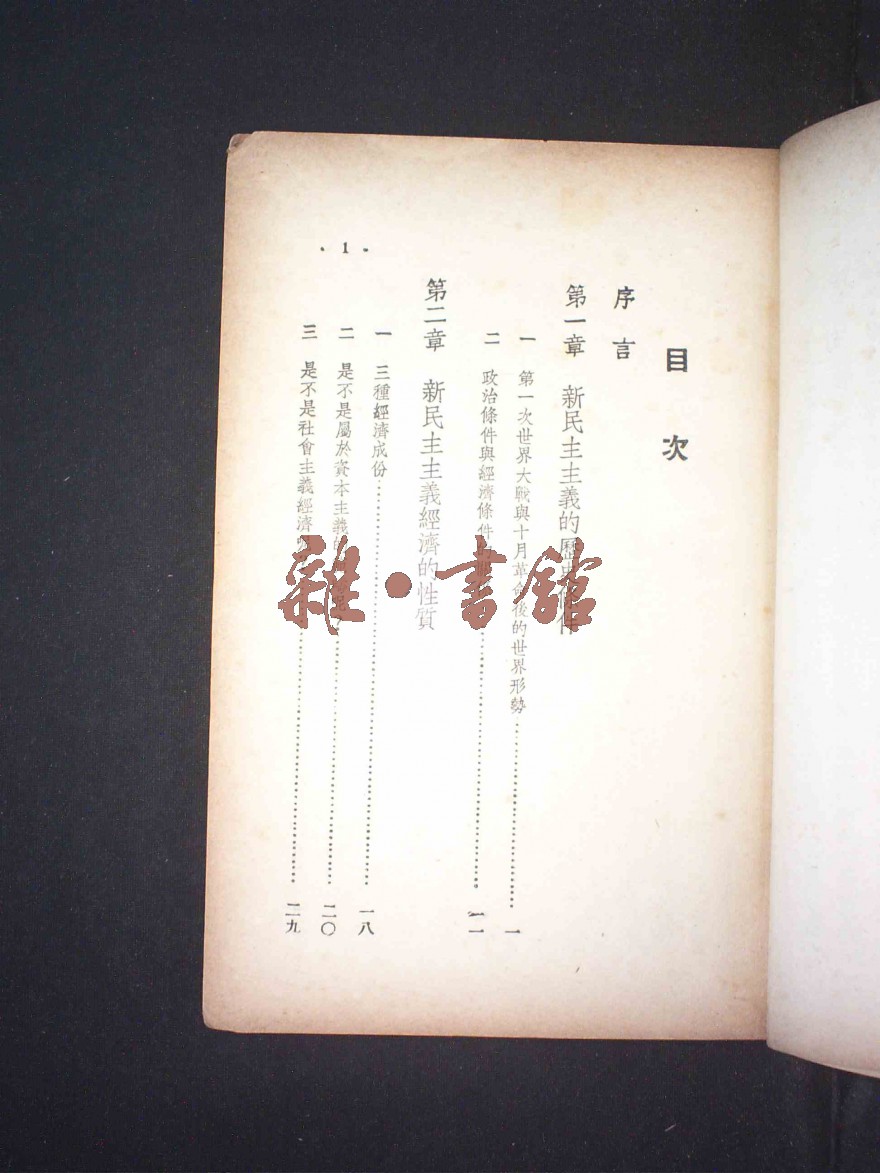 目次
序言
第一章 新民主主義的歷史條件
一 第一次世界大戰與十月革命後的世界形勢 一
二 政治條件與經濟條件
第二章 新民主主義經濟的性質
一 三種經濟成份 一八
二 是不是屬於資本主義 二〇
三 是不是社會主義經濟 二九
1
雜·書館